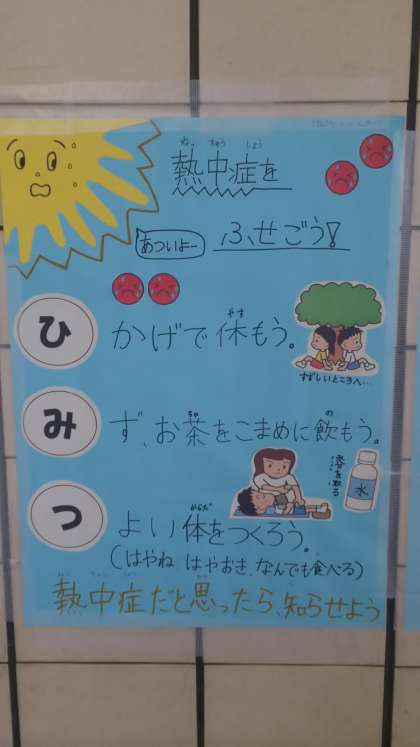 ねっ ちゅう しょう
熱中症を
あついよー
ふせごう!
やす
ひかげで休もう。
すずしいところへ…
ちゃ の
みず、お茶をこまめに飲もう。
水
からだ
つよい体をつくろう。
(はやね はやおき、なんでも食べる)
熱中症だと思ったら、知らせよう